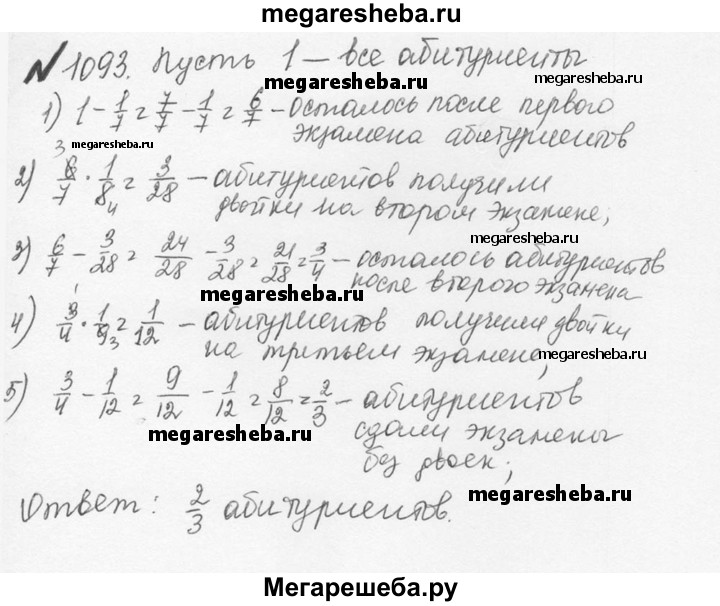 megaresheba.ru
№1093. Пусть 1 – все абитуриенты
megaresheba.ru
1) 1 - 1/7 = 7/7 - 1/7 = 6/7 - осталось после первого
экзамена абитуриентов
megaresheba.ru
2) 6/7 · 1/8 = 3/28 – абитуриентов получили
3 4
двойки на втором экзамене;
megaresheba.ru
3) 6/7 - 3/28 = 24/28 - 3/28 = 21/28 = 3/4 – осталось абитуриентов
после второго экзамена
megaresheba.ru
4) 3/4 · 1/9 = 1/12 – абитуриентов получили двойки
1 3
на третьем экзамене;
megaresheba.ru
5) 3/4 - 1/12 = 9/12 - 1/12 = 8/12 = 2/3 – абитуриентов
сдали экзамены
megaresheba.ru
без двоек;
Ответ: 2/3 абитуриентов.
megaresheba.ru
Мегарешеба.ру